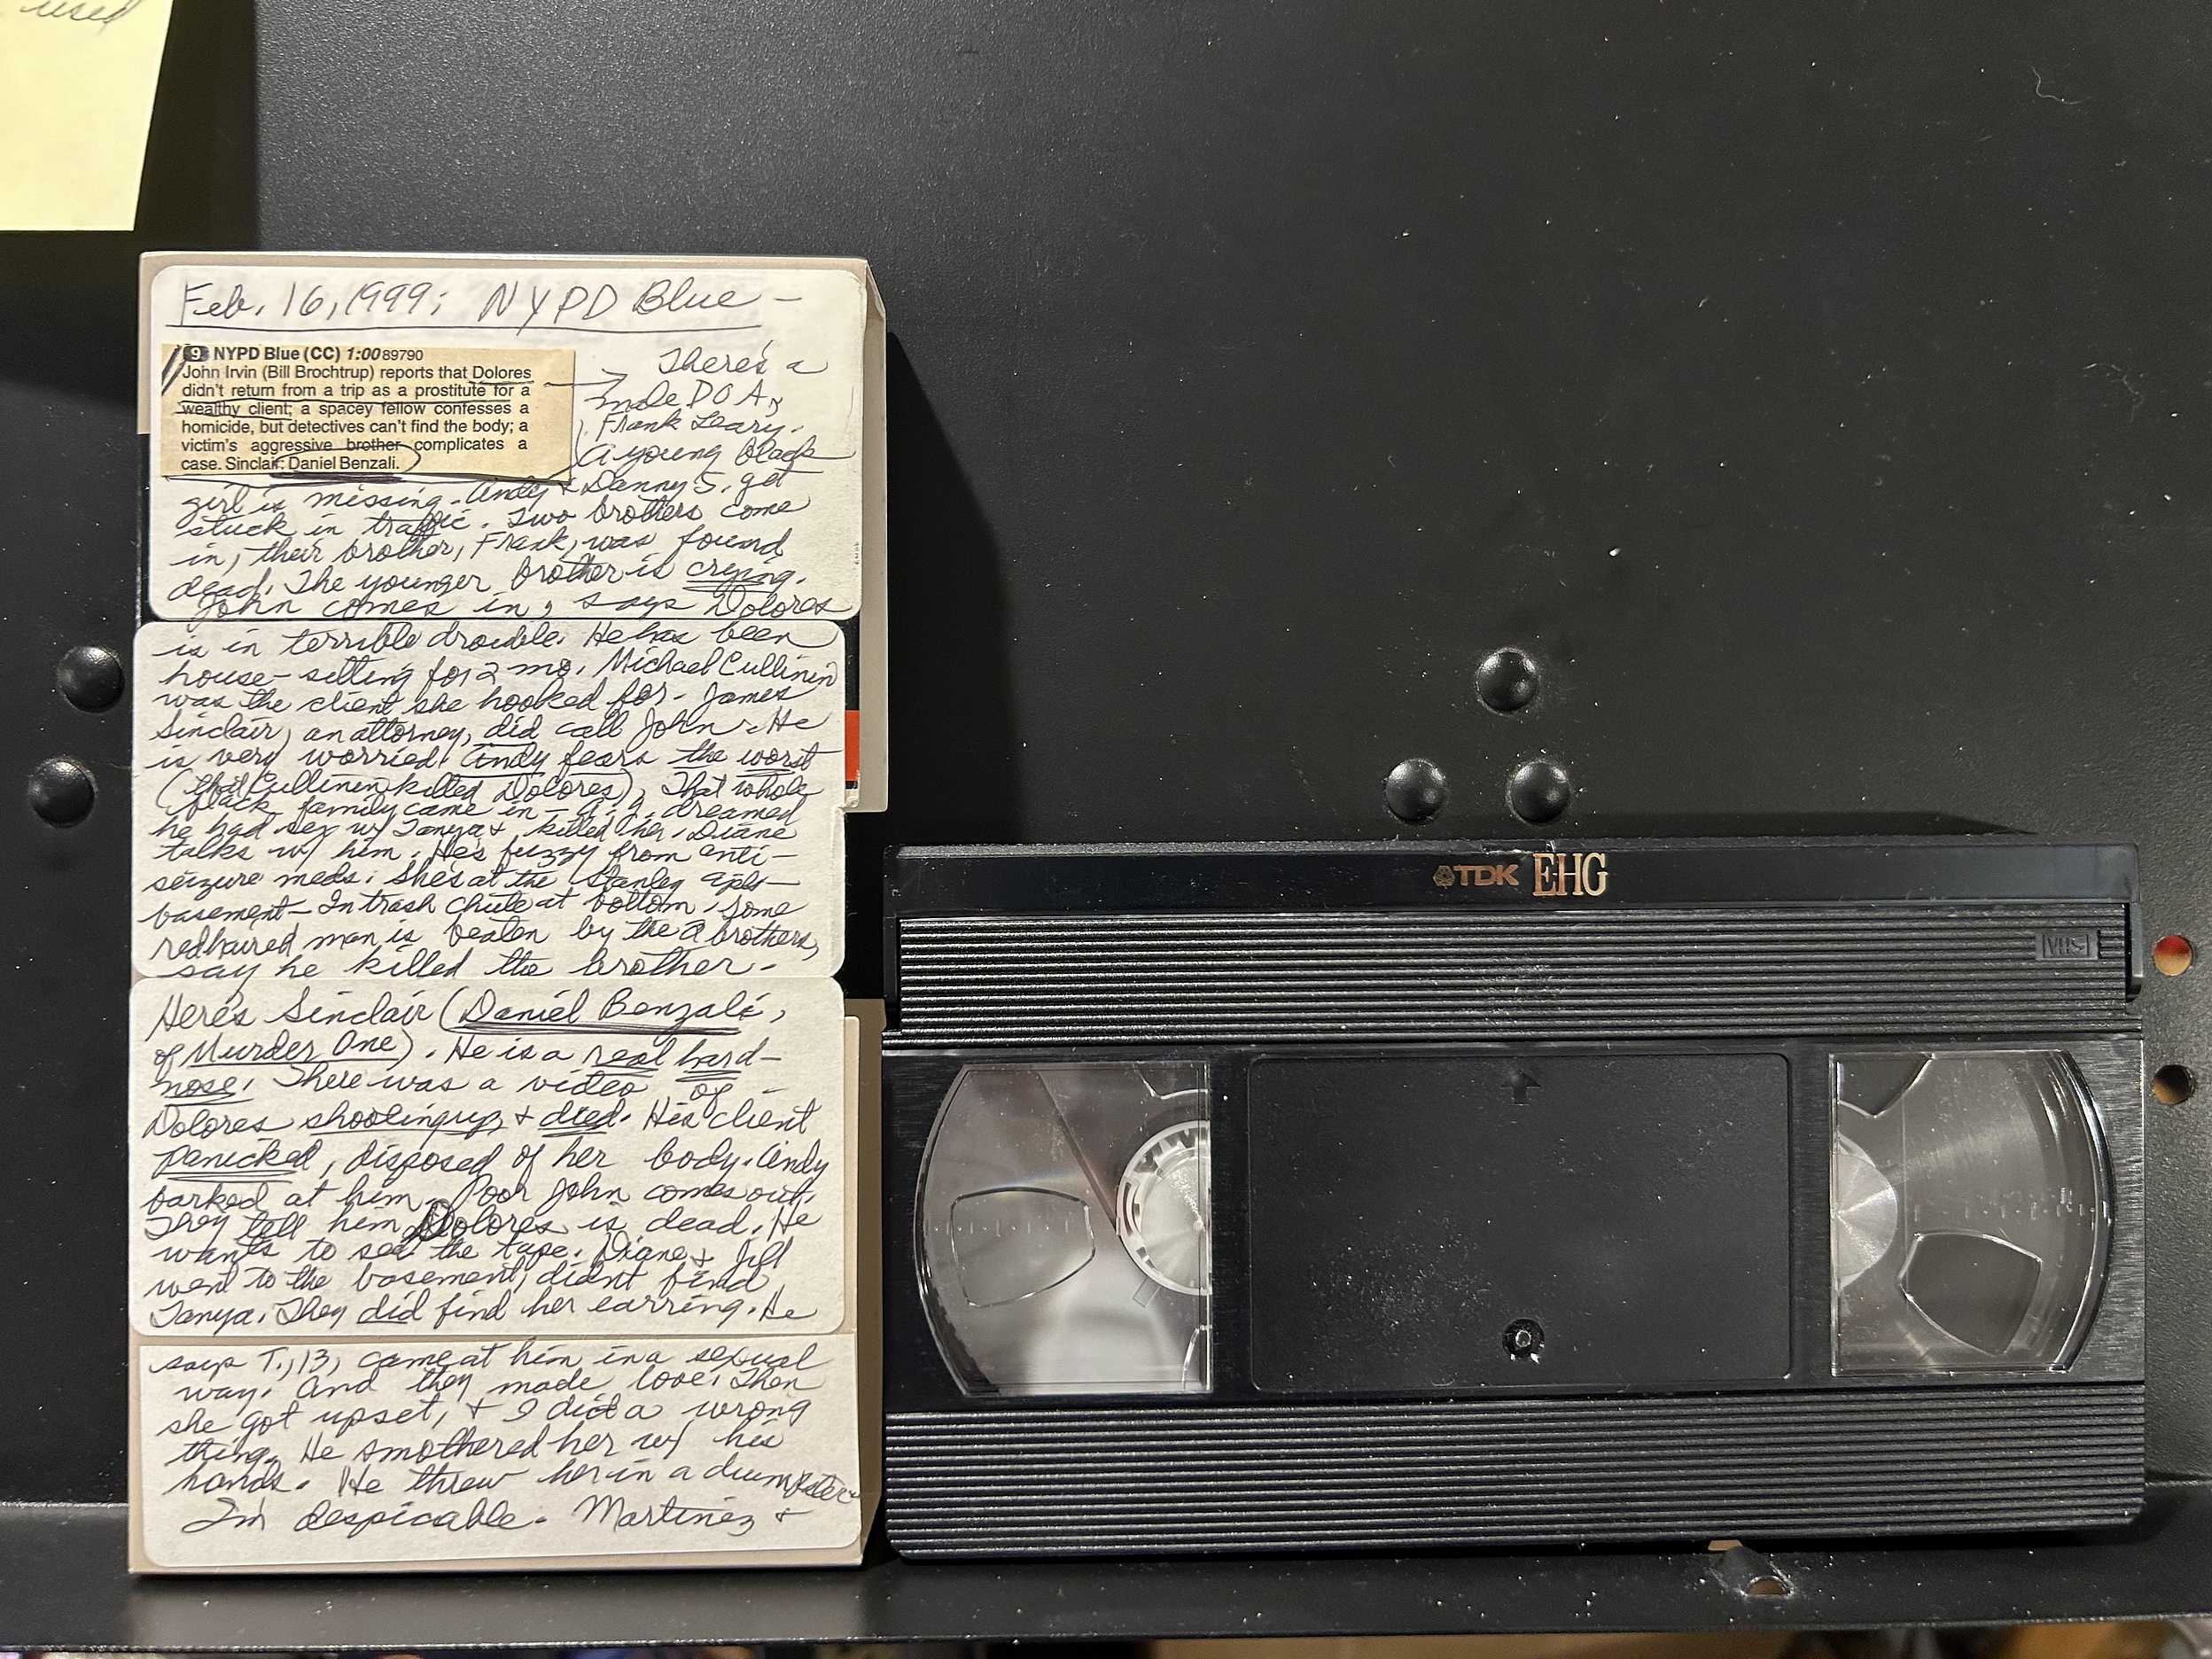 used
Feb. 16, 1999; NYPD Blue -
9 NYPD Blue (CC) 1:00 89790
John Irvin (Bill Brochtrup) reports that Dolores
didn't return from a trip as a prostitute for a
wealthy client; a spacey fellow confesses a
homicide, but detectives can't find the body; a
victim's aggressive brother complicates a
case. Sinclair: Daniel Benzali.
There's a
male DOA,
Frank Leary.
A young black
girl is missing. Andy & Danny S. get
stuck in traffic. Two brothers come
in, their brother, Frank, was found
dead. The younger brother is crying.
John comes in, says Dolores
is in terrible drouble. He has been
house-sitting for 2 mo. Michael Cullinen
was the client she hooked for - James
Sinclair, an attorney, did call John. He
is very worried. Andy fears the worst
(that Cullinen killed Dolores). That whole
black family came in - dreamed
he had sex w/ Tanya & killed her. Diane
talks w/ him. He's fuzzy from anti-
seizure meds. She's at the Stanley apts-
basement - In trash chute at bottom. Some
redhaired man is beaten by the 2 brothers,
say he killed the brother.-
Here's Sinclair (Daniel Benzali,
of Murder One). He is a real hard-
nose. There was a video of -
Dolores shooting up & died. His client
panicked, disposed of her body. Andy
barked at him. Poor John comes out.
They tell him Dolores is dead. He
wants to see the tape. Diane & Jill
went to the basement, didn't find
Tanya. They did find her earring. He
says T., 13, came at him in a sexual
way. And they made love. Then
she got upset, & I did a wrong
thing. He smothered her w/ his
hands. He threw her in a dumpster-
I'm despicable. Martinez &
TDK EHG
VHS